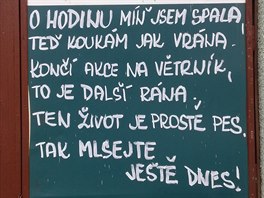 O HODINU MÍŇ JSEM SPALA,
TEĎ KOUKÁM JAK VRÁNA.
KONČÍ AKCE NA VĚTRNÍK,
TO JE DALŠÍ RÁNA.
TEN ŽIVOT JE PROSTĚ PES,
TAK MLSEJTE
JEŠTĚ DNES!